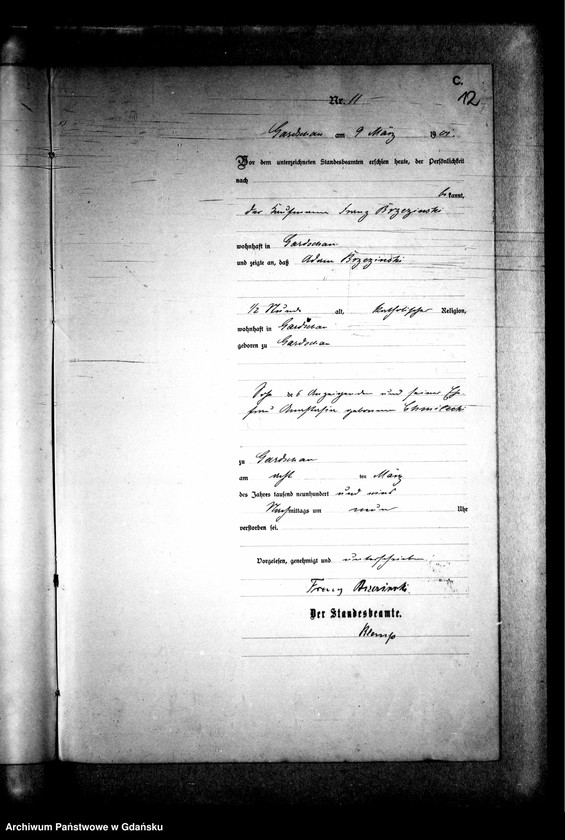 C.
12
Nr. 11
Gardschau am 9 März 1901.
Vor dem unterzeichneten Standesbeamten erschien heute, der Persönlichkeit
nach
bekannt,
der Kaufmann Franz Brzezinski
wohnhaft in Gardschau
und zeigte an, daß Adam Brzezinski
1/2 Stunde alt, katholischer Religion,
wohnhaft in Gardschau
geboren zu Gardschau
Sohn des Anzeigenden und seiner Ehe-
frau Anastasia geborenen Chmilecki
zu Gardschau
am acht ten März
des Jahrs tausend neunhundert und eins
Nachmittags um neun Uhr
verstorben sei.
Vorgelesen, genehmigt und unterschrieben
Franz Brzezinski
Der Standesbeamte.
Klemp
Archiwum Państwowe w Gdańsku